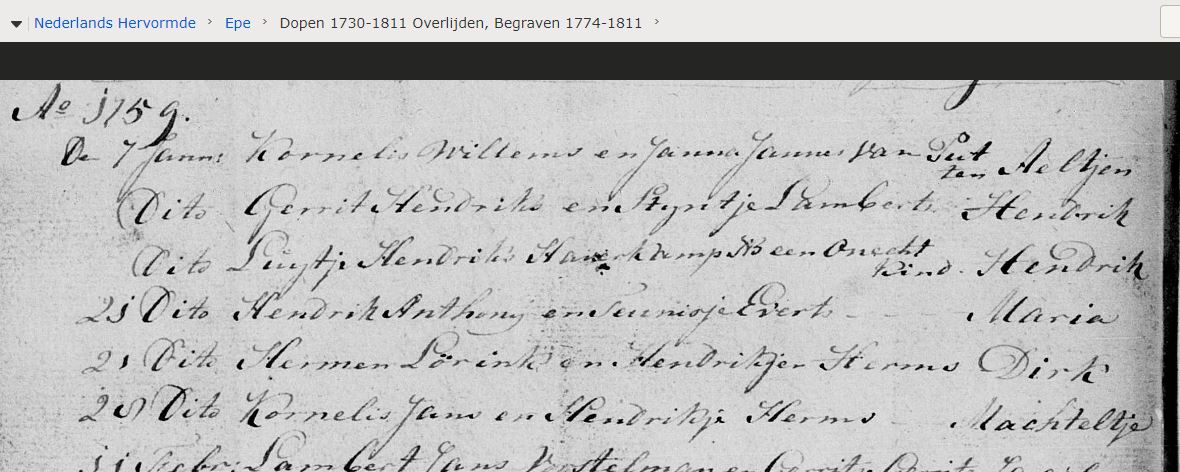 Nederlands Hervormde › Epe › Dopen 1730-1811 Overlijden, Begraven 1774-1811 ›
Ao 1759.
De 7 Janu: Kornelis Willems en Janna Jannes van Putten Aeltjen
Dito Gerrit Hendriks en Styntje Lamberts Hendrik
Dito Luytje Hendriks Haverkamp NB een Onecht kind. Hendrik
21 Dito Hendrik Anthony en Teunisje Everts - - - Maria
21 Dito Hermen Lörinks en Hendrikjen Herms Dirk
28 Dito Kornelis Jans en Hendrikje Herms Machteltje
11 Febr: Lambert Jans en Gerritje Gerrits